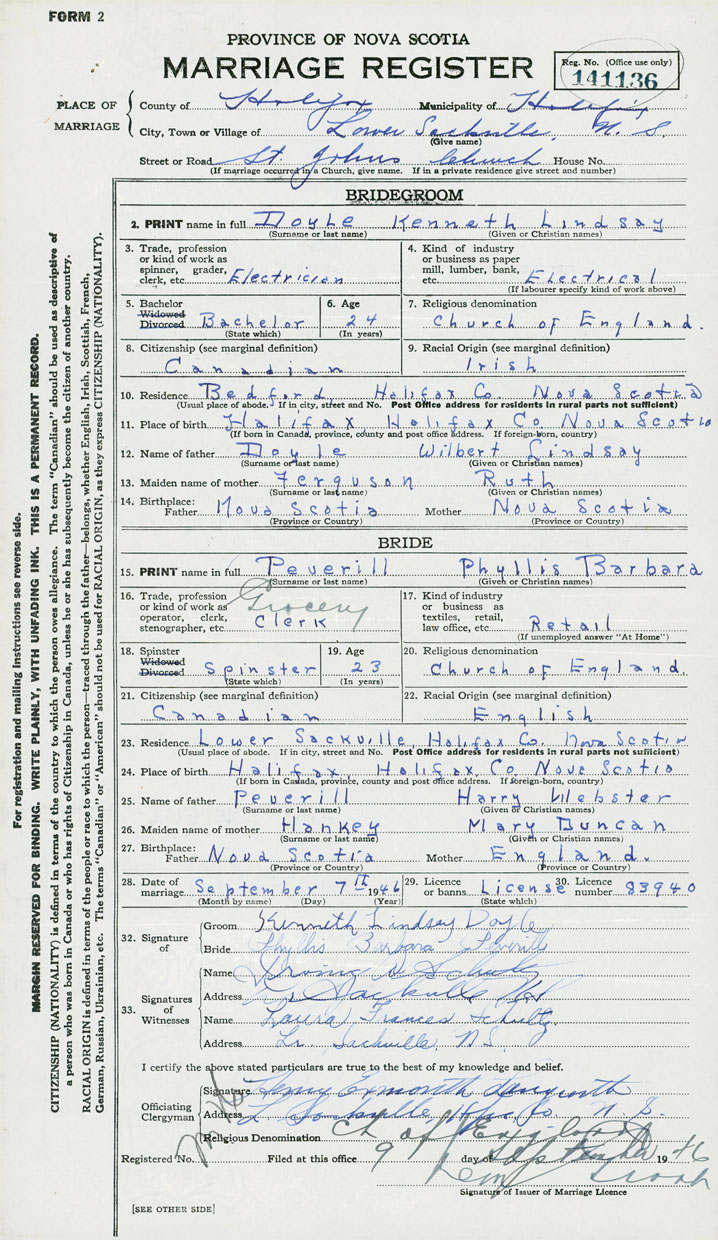 FORM 2
PROVINCE OF NOVA SCOTIA
MARRIAGE REGISTER
Reg. No. (Office use only)
141136
PLACE OF MARRIAGE
County of Halifax Municipality of Halifax
City, Town or Village of Lower Sackville, N. S.
(Give name)
Street or Road St. Johns Church House No.
(If marriage occurred in a Church, give name. If in a private residence give street and number)
BRIDEGROOM
2. PRINT name in full Doyle Kenneth Lindsay
(Surname or last name) (Given or Christian names)
3. Trade, profession or kind of work as spinner, grader, clerk, etc. Electrician
4. Kind of industry or business as paper mill, lumber, bank, etc. Electrical
(If labourer specify kind of work above)
5. Bachelor Widowed Divorced Bachelor
(State which)
6. Age 24
(In years)
7. Religious denomination
Church of England.
8. Citizenship (see marginal definition)
Canadian
9. Racial Origin (see marginal definition)
Irish
10. Residence Bedford, Halifax Co. Nova Scotia
(Usual place of abode. If in city, street and No. Post Office address for residents in rural parts not sufficient)
11. Place of birth Halifax Halifax Co Nova Scotia
(If born in Canada, province, county and post office address. If foreign-born, country)
12. Name of father Doyle Wilbert Lindsay
(Surname or last name) (Given or Christian names)
13. Maiden name of mother Ferguson Ruth
(Surname or last name) (Given or Christian names)
14. Birthplace: Father Nova Scotia Mother Nova Scotia
(Province or Country) (Province or Country)
BRIDE
15. PRINT name in full Peverill Phyllis Barbara
(Surname or last name) (Given or Christian names)
16. Trade, profession or kind of work as operator, clerk, stenographer, etc. Grocery Clerk
17. Kind of industry or business as textiles, retail, law office, etc. Retail
(If unemployed answer "At Home")
18. Spinster Widowed Divorced Spinster
(State which)
19. Age 23
(In years)
20. Religious denomination
Church of England.
21. Citizenship (see marginal definition)
Canadian
22. Racial Origin (see marginal definition)
English
23. Residence Lower Sackville, Halifax Co. Nova Scotia
(Usual place of abode. If in city, street and No. Post Office address for residents in rural parts not sufficient)
24. Place of birth Halifax Halifax Co Nova Scotia
(If born in Canada, province, county and post office address. If foreign-born, country)
25. Name of father Peverill Harry Webster
(Surname or last name) (Given or Christian names)
26. Maiden name of mother Hankey Mary Duncan
(Surname or last name) (Given or Christian names)
27. Birthplace: Father Nova Scotia Mother England.
(Province or Country) (Province or Country)
28. Date of marriage September 7th 1946
(Month by name) (Day) (Year)
29. Licence or banns License
(State which)
30. Licence number 83940
32. Signature of
Groom Kenneth Lindsay Doyle
Bride Phyllis Barbara Peverill
33. Signatures of Witnesses
Name Irving Schultz
Address Lr Sackville N.S.
Name Laura Frances Schultz
Address Lr. Sackville, N.S.
I certify the above stated particulars are true to the best of my knowledge and belief.
Officiating Clergyman
Signature Henry
Address L. Sackville, Hfx Co. N. S.
Religious Denomination Ch of England
Registered No. Filed at this office 9 day of September 1946
Signature of Issuer of Marriage Licence
[SEE OTHER SIDE]
For registration and mailing instructions see reverse side.
MARGIN RESERVED FOR BINDING. WRITE PLAINLY, WITH UNFADING INK. THIS IS A PERMANENT RECORD.
CITIZENSHIP (NATIONALITY) is defined in terms of the country to which the person owes allegiance. The term "Canadian" should be used as descriptive of
a person who was born in Canada or who has rights of Citizenship in Canada, unless he or she has subsequently become the citizen of another country.
RACIAL ORIGIN is defined in terms of the people or race to which the person—traced through the father—belongs, whether English, Irish, Scottish, French,
German, Russian, Ukrainian, etc. The terms "Canadian" or "American" should not be used for RACIAL ORIGIN, as they express CITIZENSHIP (NATIONALITY).